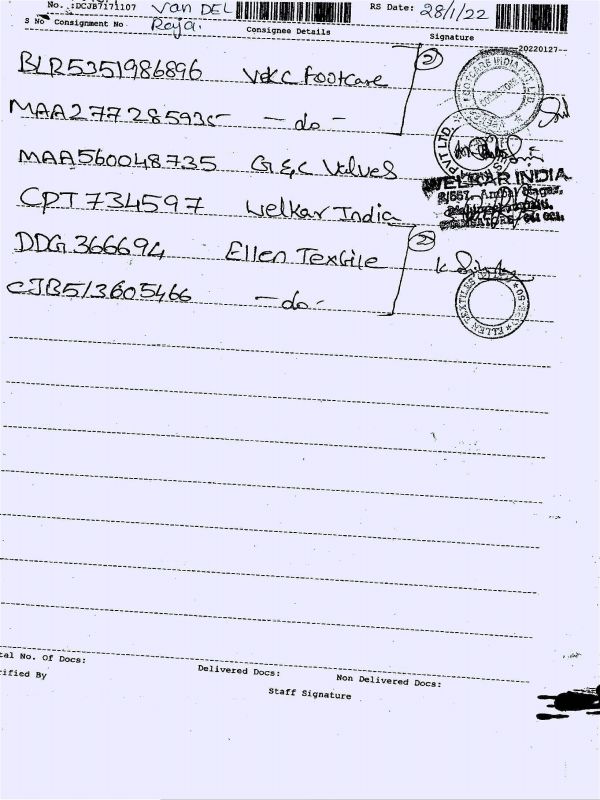 No. :DCJB7171107 Van DEL RS Date: 28/1/22
Raja.
S No Consignment No Consignee Details Signature
20220127
BLR5351986896 VKC Footcare 2
MAA277285935 - do -
MAA560048735 G&C Valves
CPT734597 Welkar India
WELKAR INDIA
DDG366694 Ellen Textile 2
CJB513605466 - do -
ELLEN TEXTILES
tal No. Of Docs: Delivered Docs: Non Delivered Docs:
rified By Staff Signature